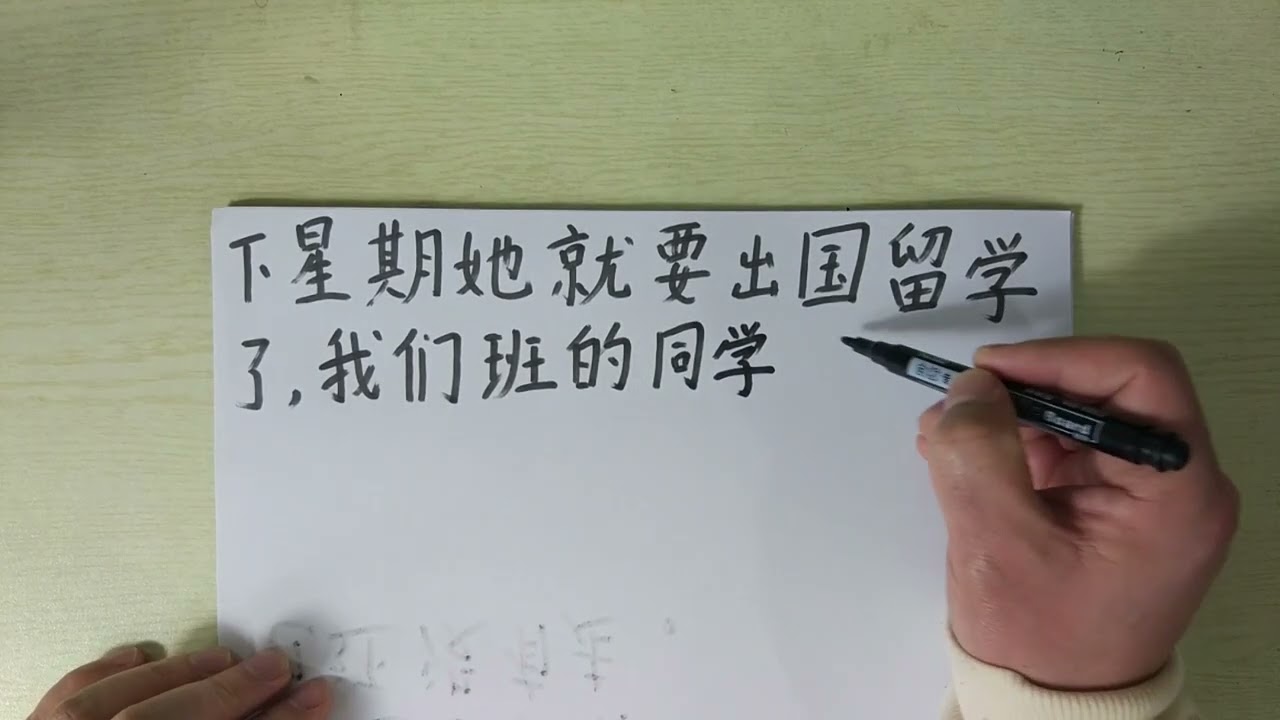 下星期她就要出国留学
了,我们班的同学
Board